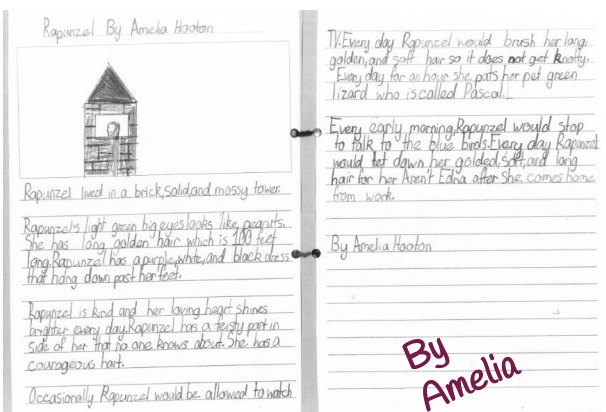 Rapunzel By Amelia Hooton
Rapunzel lived in a brick,solid,and mossy tower.
Rapunzel's light green big eyes looks like peanuts.
She has long golden hair which is 100 feet
long.Rapunzel has a purple,white,and black dress
that hang down past her feet.
Rapunzel is kind and her loving heart shines
brighter every day.Rapunzel has a feisty part in
side of her that no one knows about. She has a
courageous hart.
Occasionally Rapunzel would be allowed to watch
TV.Every day Rapunzel would brush her long,
golden,and soft hair so it does not get knotty.
Every day for an hour she pats her pet green
lizard who is called Pascal.
Every early morning,Rapunzel would stop
to talk to the blue birds.Every day Rapunzel
would let down her golded,soft,and long
hair for her Aren't Edna after she comes home
from work.
By Amelia Hooton
By
Amelia